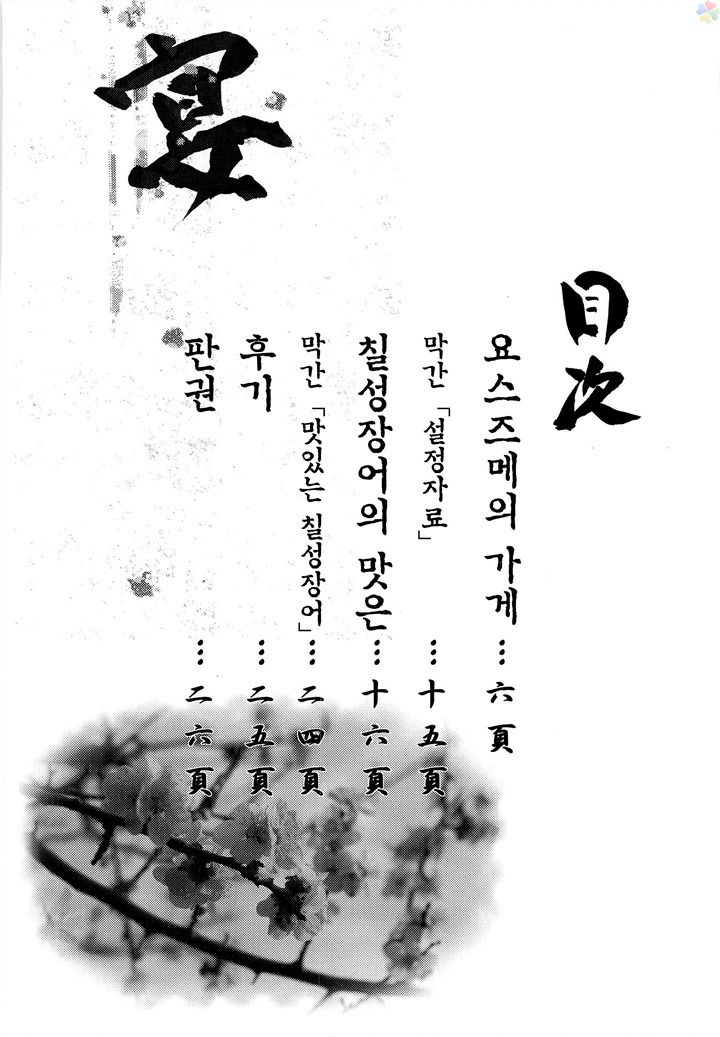 宴
目次
요스즈메의 가게…六頁
막간「설정자료」…十五頁
칠성장어의 맛은…十六頁
막간「맛있는 칠성장어」…二四頁
후기…二五頁
판권…二六頁